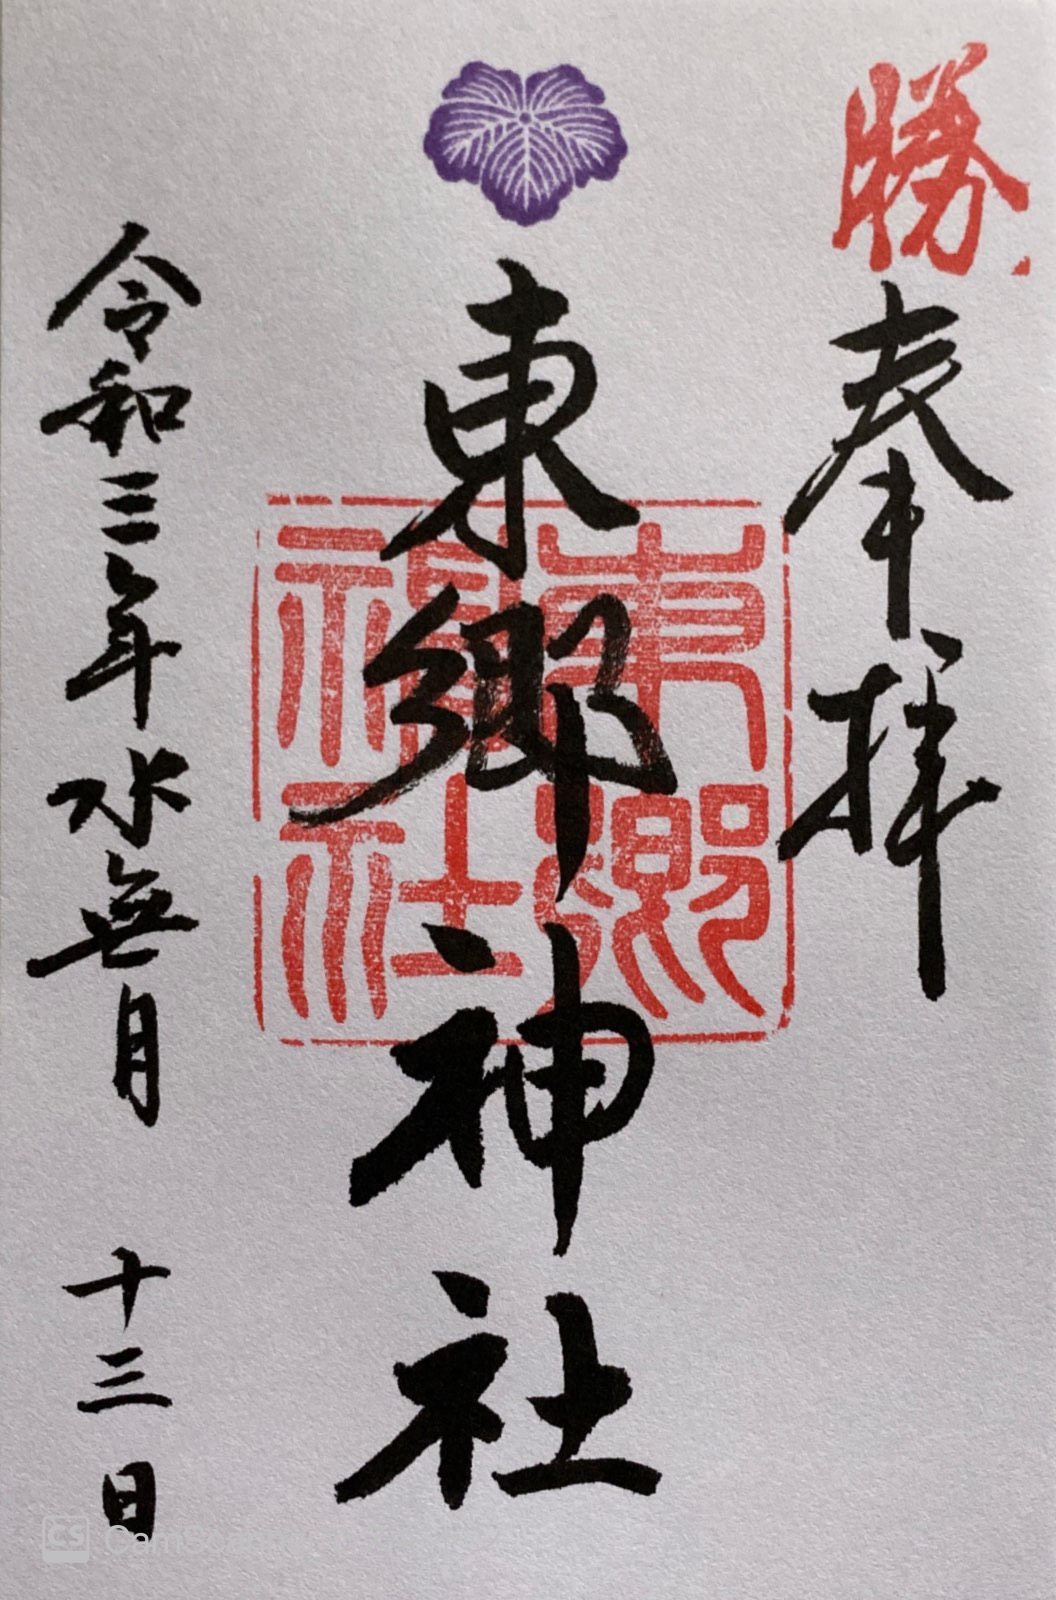 勝
奉拝
東郷神社
東郷神社
令和三年水無月 十三日
CS CamScanner